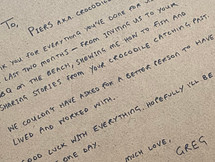 To,
PIERS AKA CROCODILE
K YOU FOR EVERYTHING YOU'VE DONE FOR
LAST TWO MONTHS - FROM INVITING US TO YOUR
ON THE BEACH, SHOWING ME HOW TO FISH AND
SHARING STORIES FROM YOUR CROCODILE CATCHING PAST.
WE COULDN'T HAVE ASKED FOR A BETTER PERSON TO HAVE
LIVED AND WORKED WITH.
GOOD LUCK WITH EVERYTHING, HOPEFULLY I'LL BE
ONE DAY.
MUCH LOVE,
GREG